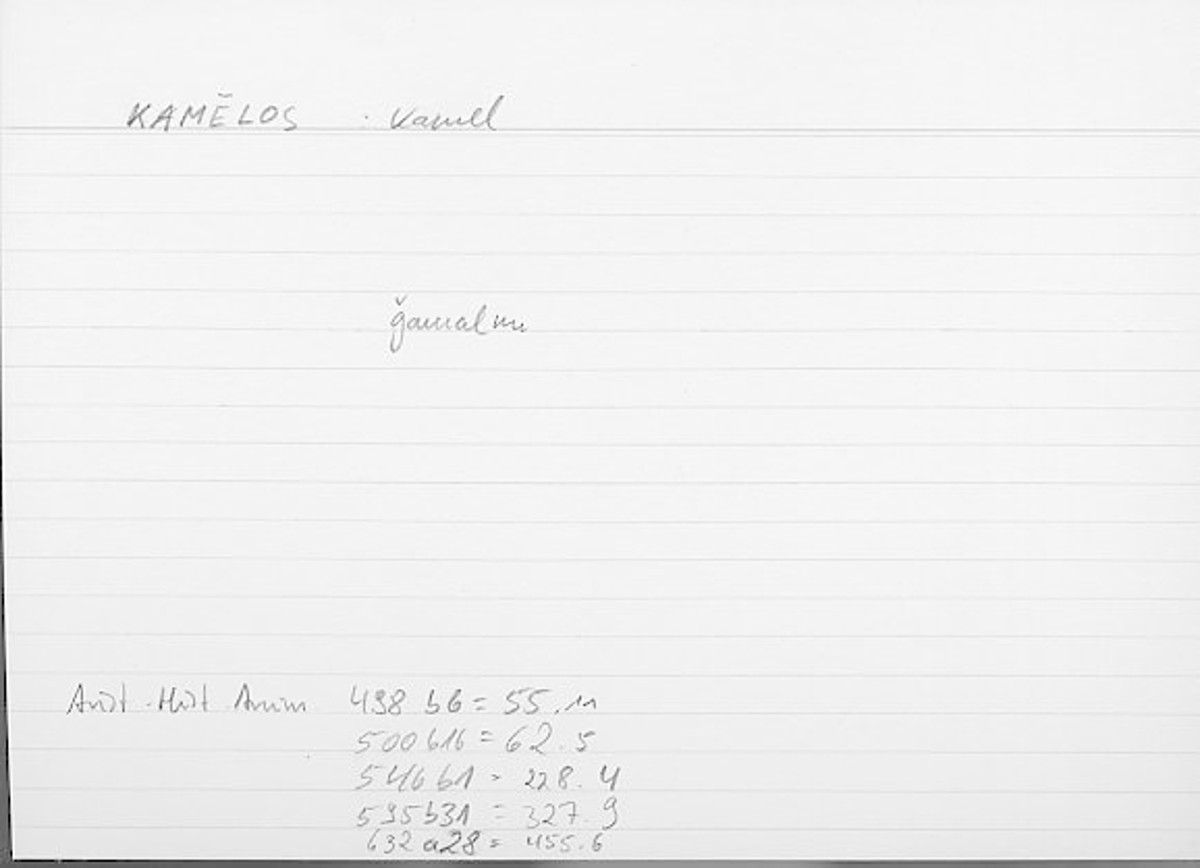 KAMĒLOS : Kamel
ǧamalun
Arist. Hist Anim 498 b6 = 55.11
500 b16 = 62.5
546 b1 = 228.4
595 b31 = 327.9
632 a28 = 455.6